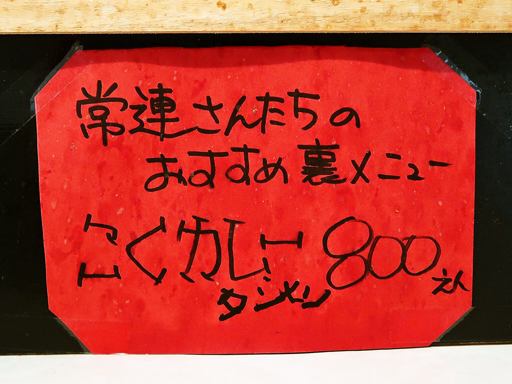 常連さんたちの
おすすめ裏メニュー
にくカレー 800えん
タンメン